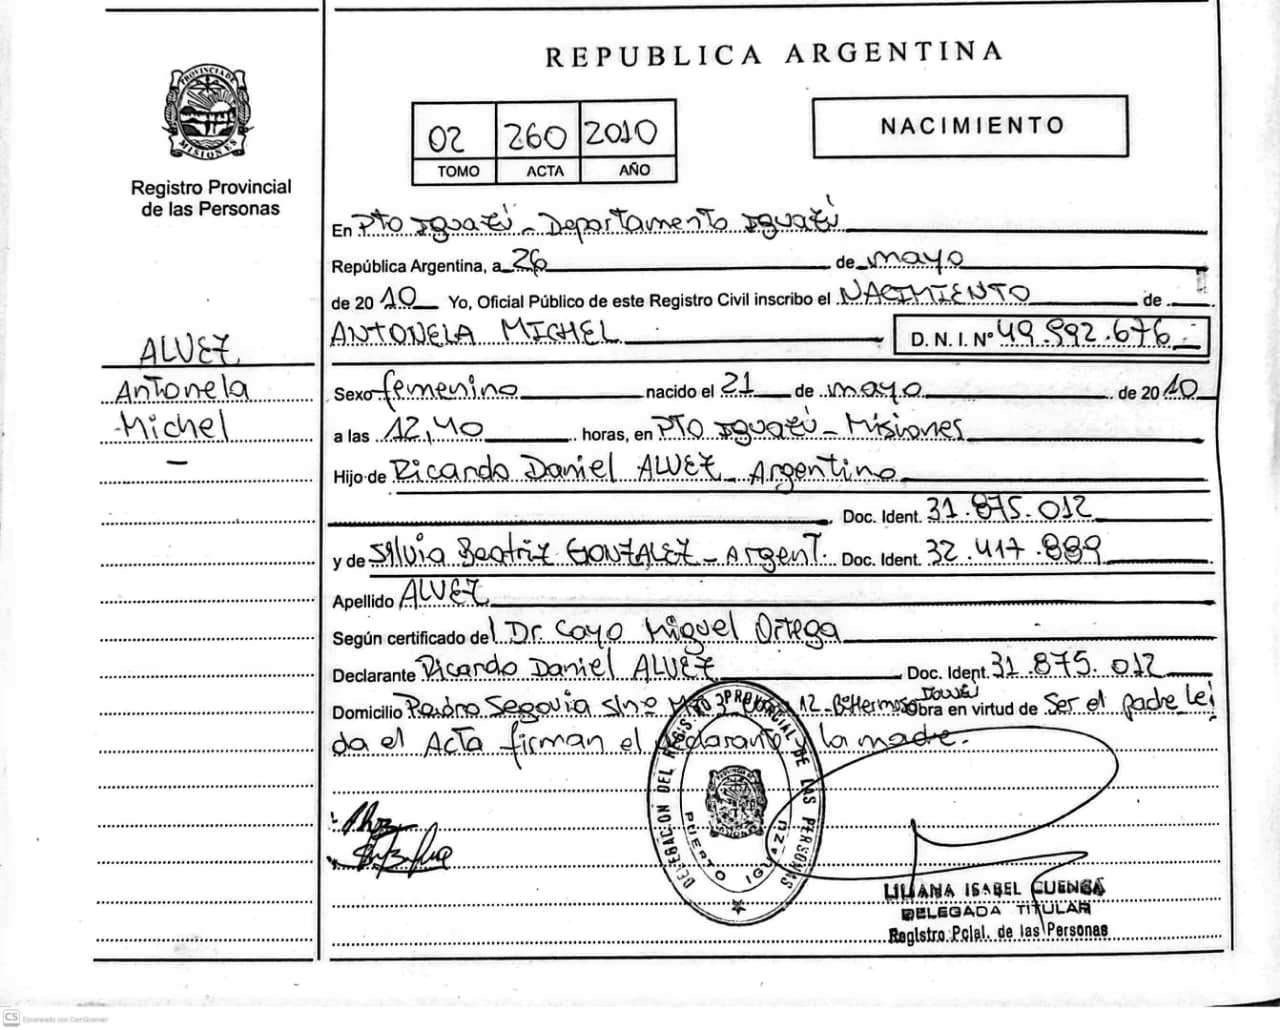 REPUBLICA ARGENTINA
PROVINCIA DE
MISIONES
Registro Provincial
de las Personas
02 260 2010
TOMO ACTA AÑO
NACIMIENTO
En Pto Iguazú - Departamento Iguazú
República Argentina, a 26 de mayo
de 2010 Yo, Oficial Público de este Registro Civil inscribo el NACIMIENTO de
ANTONELA MICHEL D. N. I. Nº 49.992.676
ALVEZ
Antonela
Michel
Sexo femenino nacido el 21 de mayo de 2010
a las 12,40 horas, en Pto Iguazú - Misiones
Hijo de Ricardo Daniel ALVEZ - Argentino
Doc. Ident. 31.875.012
y de Silvia Beatriz GONZALEZ - Argent. Doc. Ident. 32.417.889
Apellido ALVEZ
Según certificado del Dr. Cayo Miguel Ortega
Declarante Ricardo Daniel ALVEZ Doc. Ident. 31.875.012
Domicilio Pedro Segovia s/nº 12 Bº Hermoso Obra en virtud de Ser el padre Lei
da el Acta firman el declarante la madre.
DELEGACION DEL REGISTRO PROVINCIAL DE LAS PERSONAS
PUERTO IGUAZU
LILIANA ISABEL CUENCA
DELEGADA TITULAR
Registro Pcial. de las Personas
CS Escaneado con CamScanner